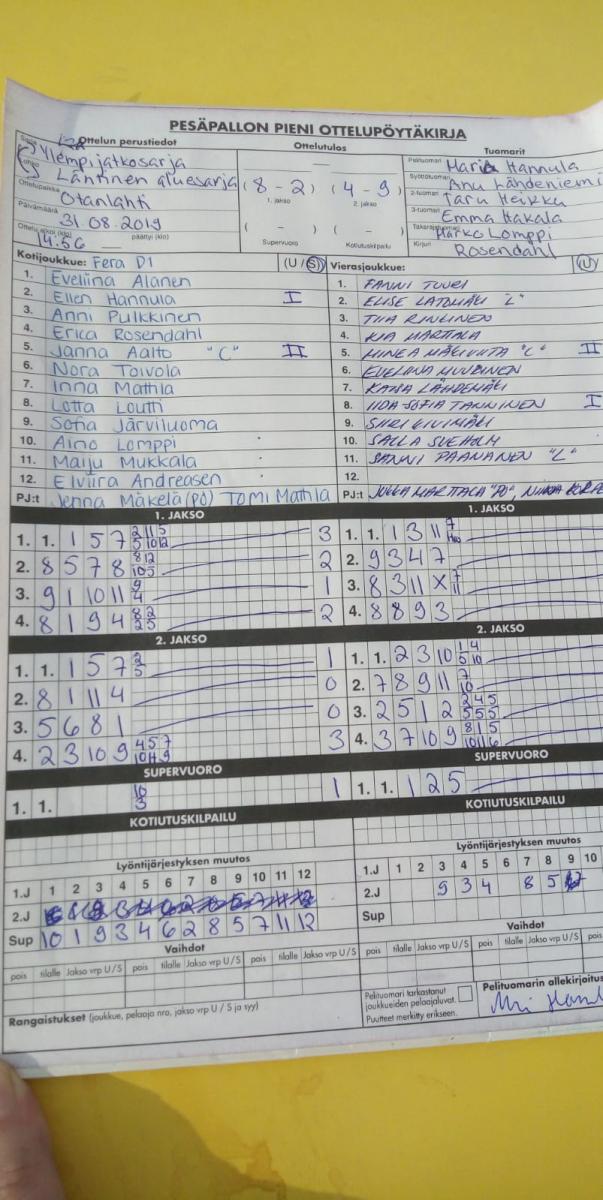 PESÄPALLON PIENI OTTELUPÖYTÄKIRJA
Ottelun perustiedot Ottelutulos Tuomarit
Ylempijatkosarja
Läntinen aluesarja
Ottelupaikka Otanlahti
Päivämäärä 31 08.2019
14.56 päättyi (klo)
(8 - 2) (4 - 9)
1. jakso 2. jakso
( - ) ( - )
Supervuoro Kotiutuskilpailu
Pelituomari Hannula
Syöttötuomari Anu Lähdeniemi
2-tuomari Taru Heikku
3-tuomari Emma Hakala
Takarajatuomari Marko Lomppi
Kirjuri Rosendahl
Kotijoukkue: Fera D1 (U / S)
1. Eveliina Alanen
2. Ellen Hannula I
3. Anni Pulkkinen
4. Erica Rosendahl
5. Janna Aalto "C" II
6. Nora Toivola
7. Inna Mathla
8. Lotta Loutti
9. Sofia Järviluoma
10. Aino Lomppi
11. Maiju Mukkala
12. Elviira Andreasen
PJ:t Jenna Mäkelä (PÖ) TOMI Mathla
Vierasjoukkue: (U)
1. FANNI TUURI
2. ELISE "L"
3. TIIA RINTINEN
4. KIA MARTTALA
5. MINEA "C" II
6. EVELIINA
7. KATSA LÄHDEMÄKI
8. IIDA-SOFIA TANNINEN I
9. SIIRI KIVIMÄKI
10. SALLA
11. SANNI PAANANEN "L"
12.
PJ:t JUKKA MARTTALA "PÖ",
1. JAKSO
1. 1. 1 5 7 3
2. 8 5 7 8 2
3. 9 1 10 11 9 4 1
4. 8 1 9 4 2
2. JAKSO
1. 1. 1 5 7 2 5 1
2. 8 1 11 4 0
3. 5 6 8 1 0
4. 2 3 10 9 3
SUPERVUORO
1. 1. 10 3 1
KOTIUTUSKILPAILU
1. JAKSO
1. 1. 1 3 11
2. 9 3 4 7
3. 8 3 11 X 7 11
4. 8 8 9 3
2. JAKSO
1. 1. 2 3 10 1 4 5 10
2. 7 8 9 11 7 10
3. 2 5 1 2 2 4 5 5 5 5
4. 3 7 10 9 8 1 5 10 11 6
SUPERVUORO
1. 1. 1 2 5
KOTIUTUSKILPAILU
Lyöntijärjestyksen muutos
1.J 1 2 3 4 5 6 7 8 9 10 11 12
2.J
Sup 10 1 9 3 4 6 2 8 5 7 11 12
Vaihdot
pois tilalle Jakso vrp U / S pois tilalle Jakso vrp U / S pois tilalle Jakso vrp U / S
Rangaistukset (joukkue, pelaaja nro, jakso vrp U / S ja syy)
Lyöntijärjestyksen muutos
1.J 1 2 3 4 5 6 7 8 9 10
2.J 9 3 4 8 5
Sup
Vaihdot
pois tilalle Jakso vrp U / S pois tilalle
Pelituomari tarkastanut joukkueiden pelaajaluvat.
Puutteet merkitty erikseen.
Pelituomarin allekirjoitus